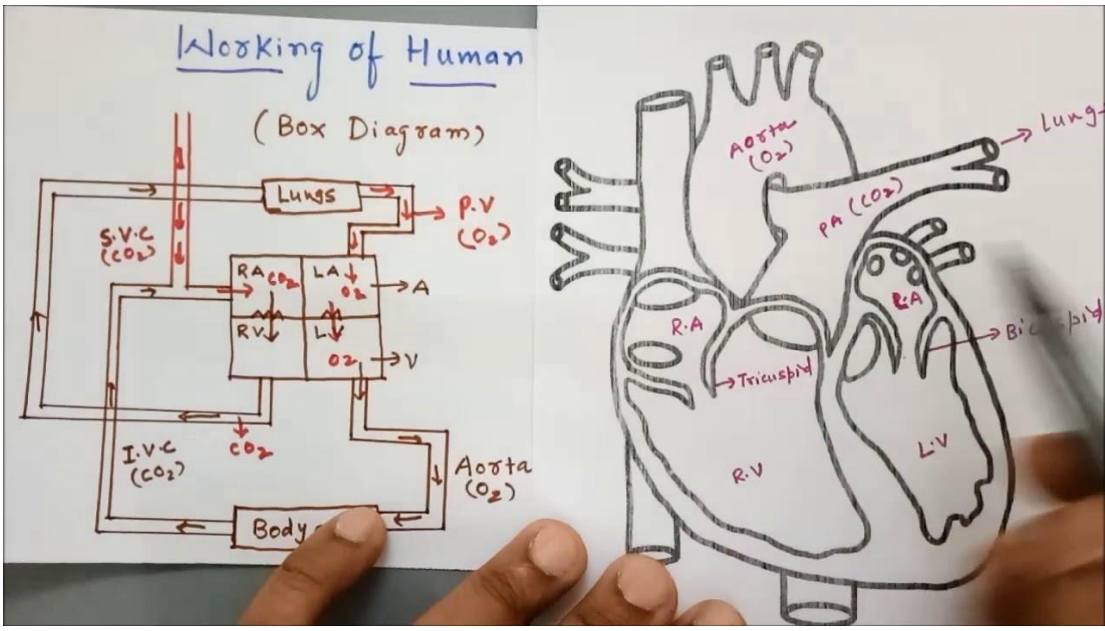 Working of Human
(Box Diagram)
Lungs
P.V
(O2)
S.V.C
(CO2)
RA
CO2
LA
O2
A
RV
LV
O2
V
CO2
I.V.C
(CO2)
Aorta
(O2)
Body
Aorta
(O2)
Lung
PA (CO2)
R.A
L.A
Bicuspid
Tricuspid
R.V
L.V